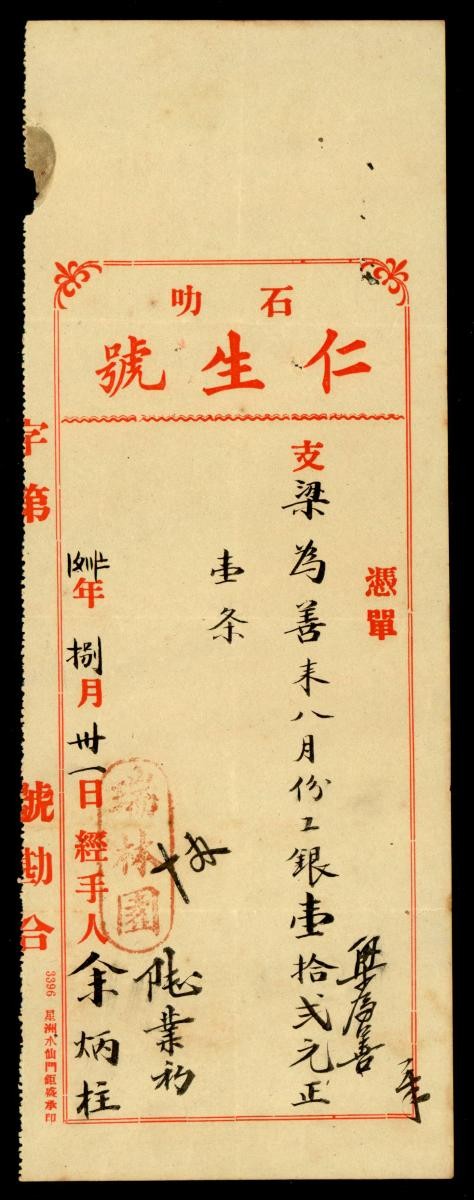 石叻
仁生號
憑單
支梁為善来八月份工銀壹拾弍元正
梁為善
壹条
瑞林園
年捌月卅一日經手人余炳柱
字第
號勘合
3396 星洲水仙門鉅盛承印